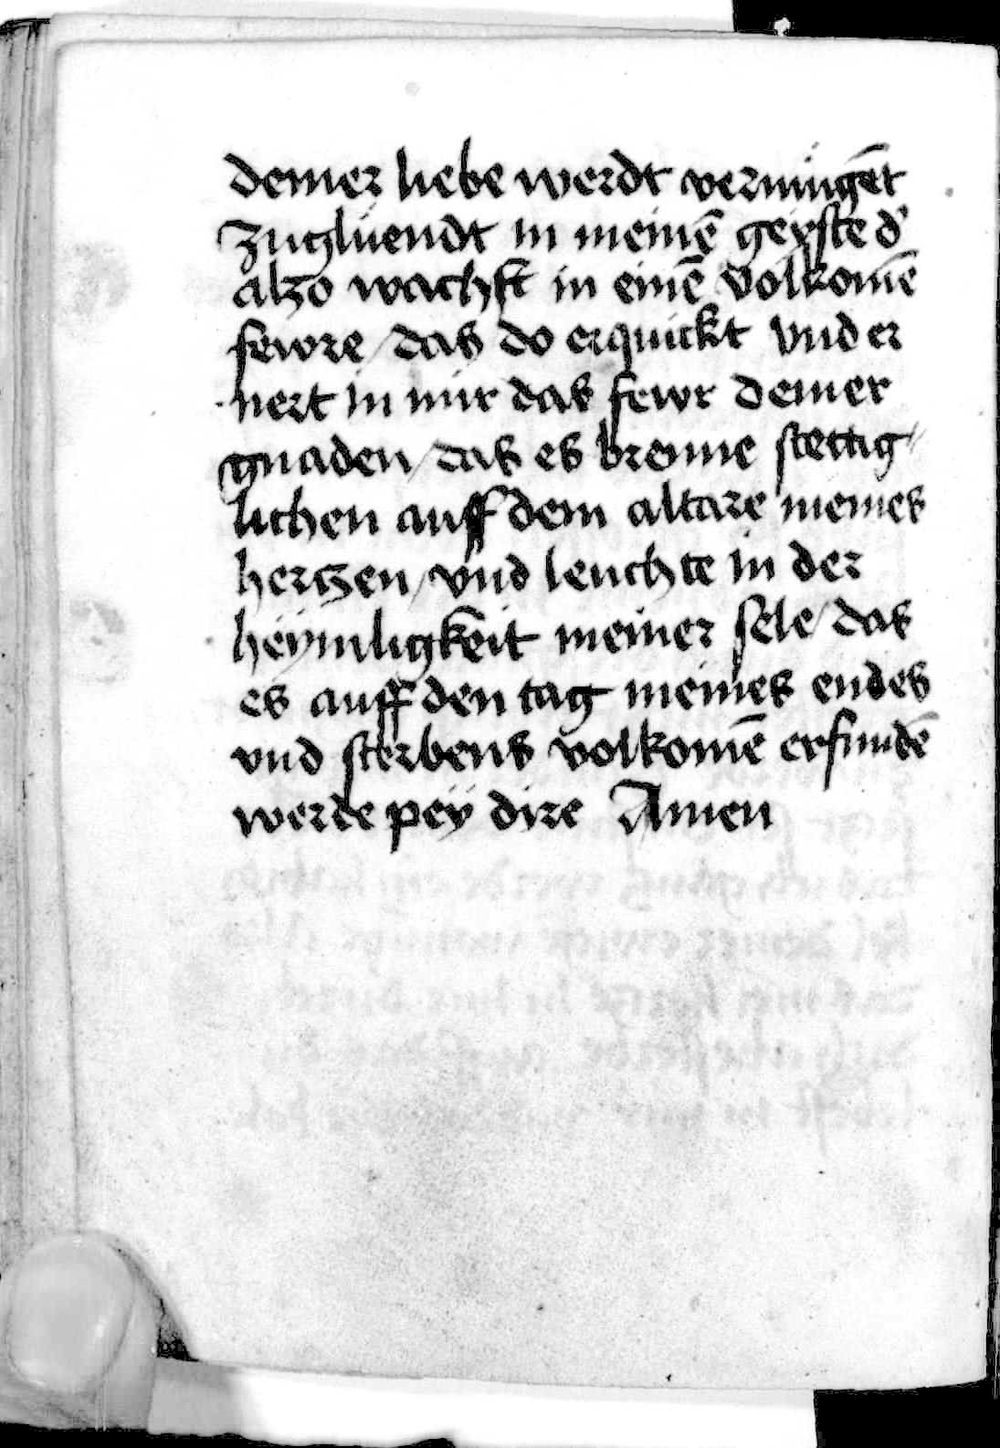 deiner liebe werdt verningēt
zugluendt in meinē geyste d'
alzo wachst in einē volkomē
fewre / das do erquickt vnd er
nert in mir das fewr deiner
gnaden / das es brenne stettig
lichen auff dem altare meines
hertzen / vnd leuchte in der
heÿmligkēit meiner sele / das
es auff den tag meines endes
vnd sterbens volkomē erfundē
werde peÿ dire Amen